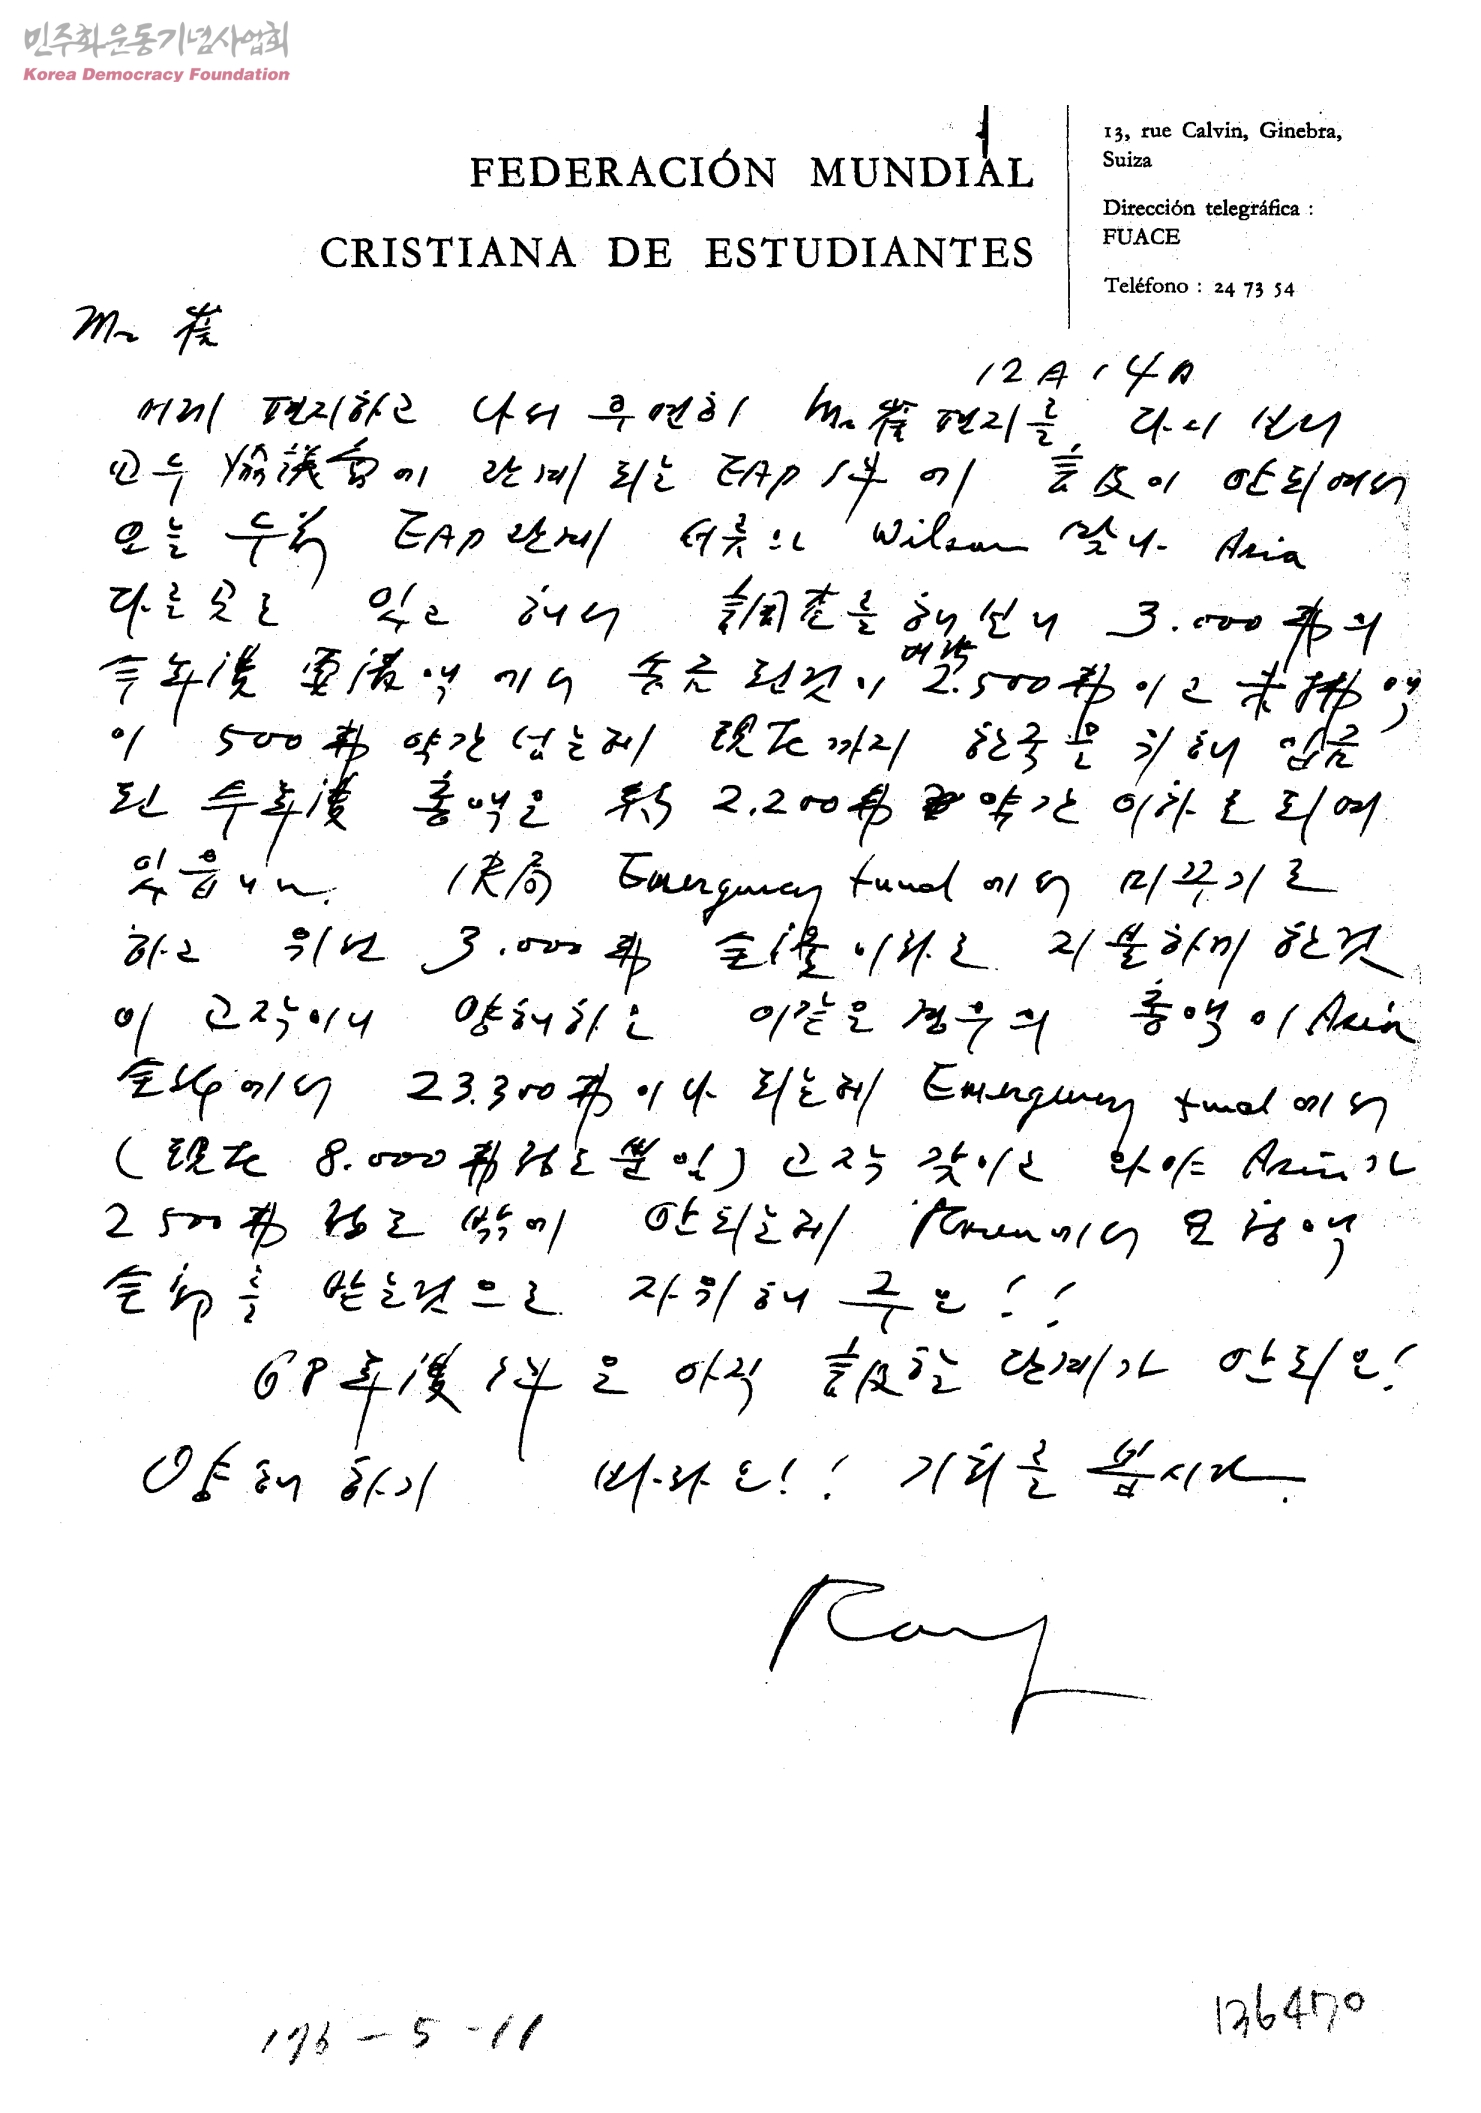 민주화운동기념사업회
Korea Democracy Foundation
FEDERACIÓN MUNDIAL
CRISTIANA DE ESTUDIANTES
13, rue Calvin, Ginebra,
Suiza
Dirección telegráfica :
FUACE
Teléfono : 24 73 54
Mr 崔
12月 14日
어제 편지하고 나서 우연히 Mr 崔 편지를 다시 보니
교수 協議會에 관계되는 EAP 件에 言及이 안되여서
오늘 EAP 관계 서류는 Wilson Asia
다른 곳으로 있고 해서 調査를 해보니 3.000弗의
今年度 要請액에서 송금된것이 대략 2.500弗이고 未拂액
이 500弗 약간 넘는데 現在까지 한국을 위해 입금
된 今年度 총액은 2.200弗 약간 이하로 되여
있읍니다. 決局 Emergency fund에서 미꾸기로
하고 3.000弗 全액 이하로 지불하게 한것
이 고작이니 양해하오 이같은 경우의 총액이 Asia
全域에서 23.300弗이나 되는데 Emergency fund에서
(現在 8.000弗정도뿐임) 고작 갖이고 와야 Asia가
2500弗 정도 밖에 안되는데 Korea에서 요청액
全部를 받는것으로 자위해 주오!!
68年度 件은 아직 言及할 단계가 안되오!
양해하기 바라오!! 기회를 봅시다.
Ray
176-5-11
136470